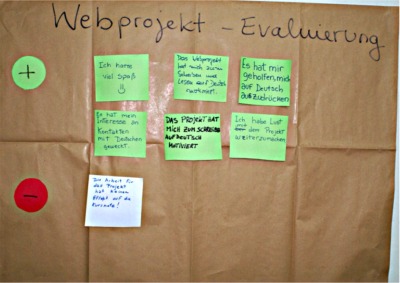 Webprojekt - Evaluierung
+
Ich hatte
viel Spaß
Das Webprojekt
hat mich zum
Schreiben und
Lesen auf Deutsch
motiviert.
Es hat mir
geholfen, mich
auf Deutsch
auszudrücken
Es hat mein
Interesse an
Kontakten
mit Deutschen
geweckt.
DAS PROJEKT HAT
MICH ZUM SCHREIBEN
AUF DEUTSCH
MOTIVIERT
Ich habe Lust
mit dem Projekt
weiterzumachen
-
Die Arbeit für
das Projekt
hat keinen
Effekt auf die
Kursnote!